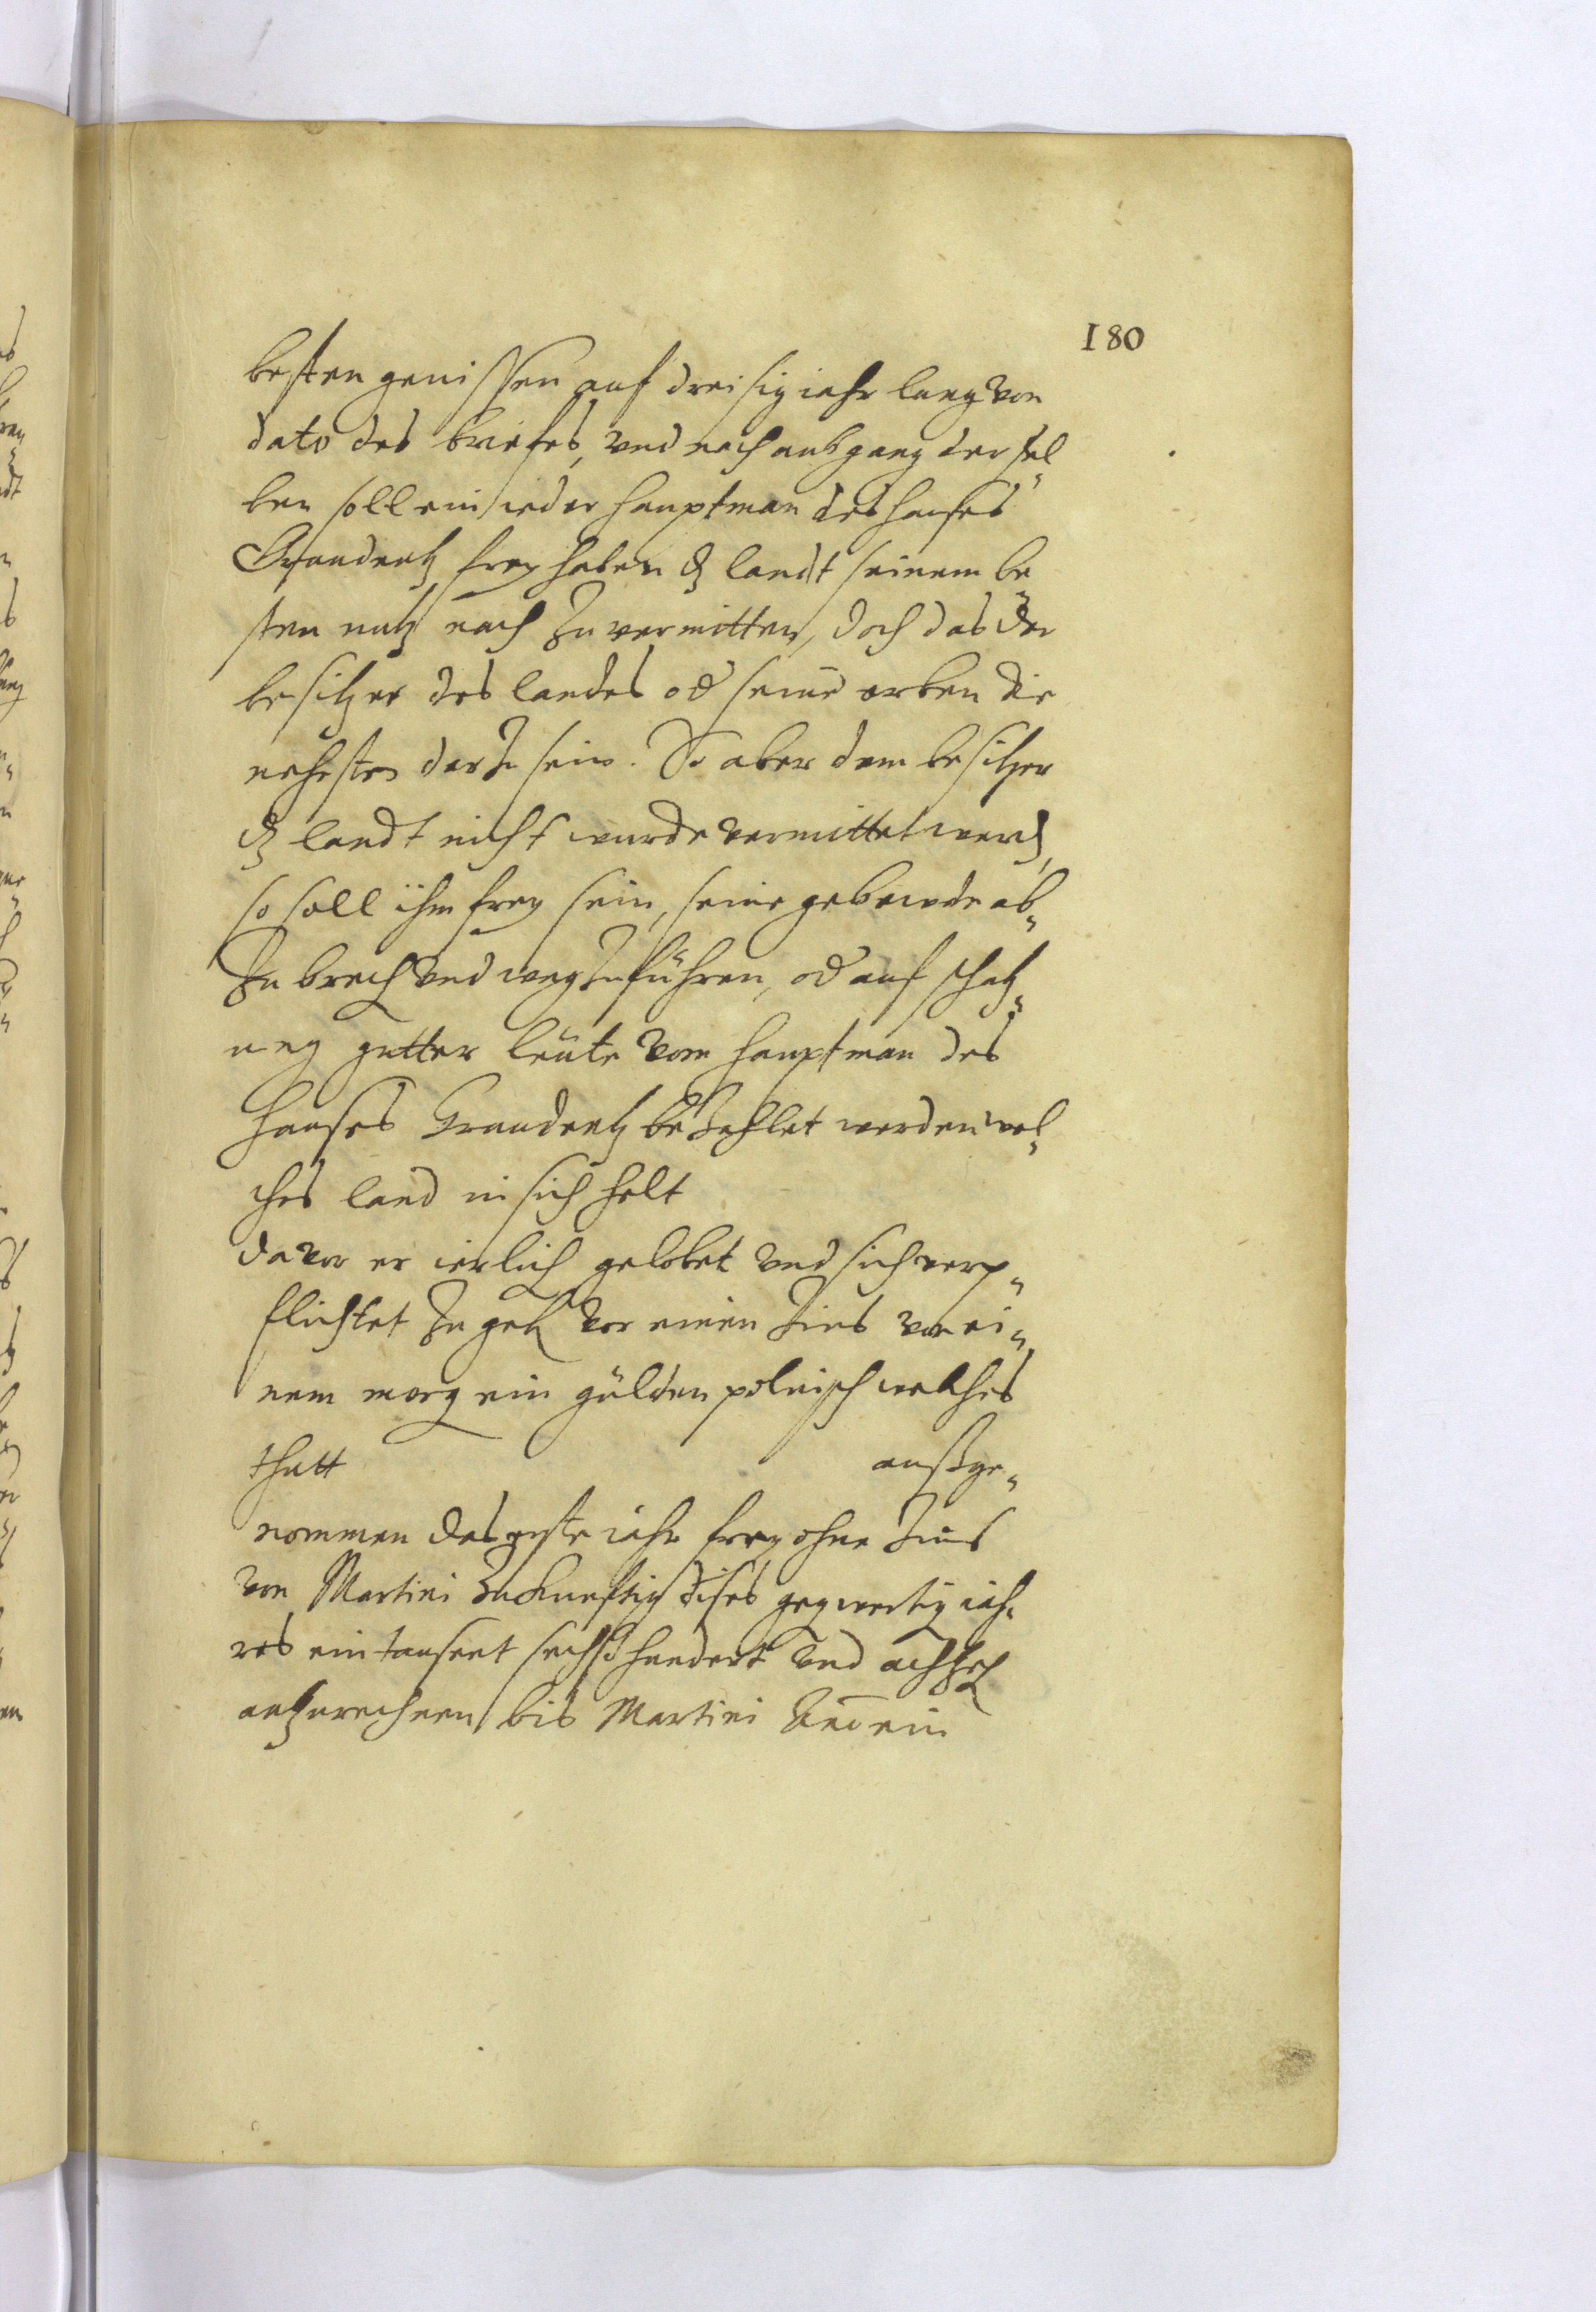 180
besten genissen auf dreisig iahr lang von
dato des briefes, und nach außgang der sel¬
ben soll ein ieder hauptman des hauses
Graudentz frey haben dz landt seinem be¬
sten nutz nach zu vermitten, doch das der
besitzer des landes od seine erben die
nehesten darzu sein. So aber dem besitzer
dz landt nicht wurde vermittet werd,
so soll ihm frey sein, seine gebewde ab¬
zu brech und weg zu führen, od auf schatz¬
ung gutter leute vom hauptman des
hauses Graudentz bezahlet werden wel¬
ches land in sich helt
davor er ierlich gelobet und sich verp¬
flichtet zu geb vor einen Zins von ei¬
nem morg ein gülden polnisch welches
thutt außge¬
nommen das erste iahr frey ohne Zins
von Martini zukunftig dises gegwertig iah¬
res ein tausent sechß hundert und achtzeh
antzurechnen bis Martini